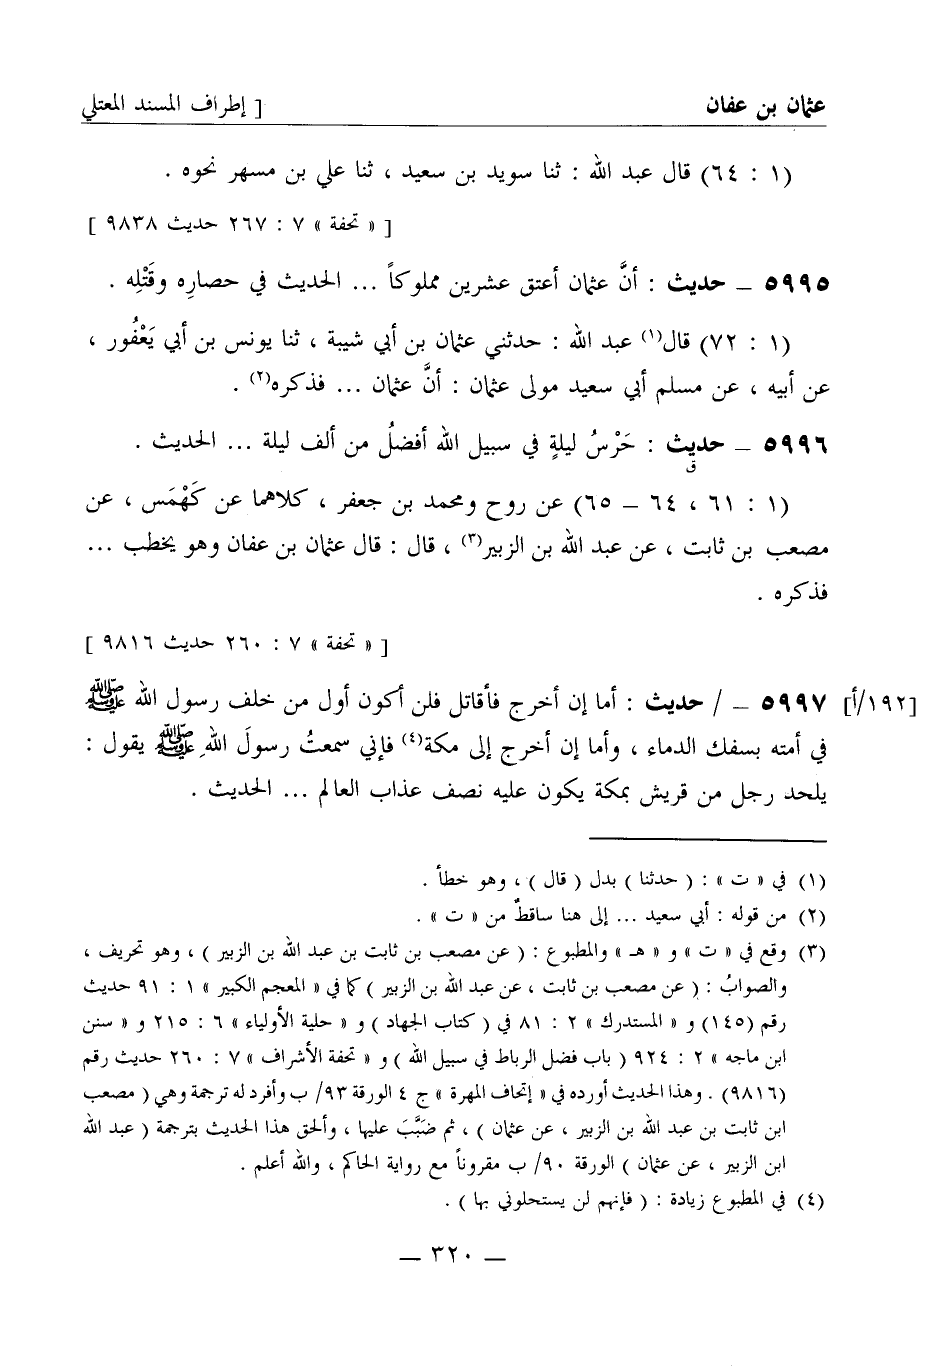 عثمان بن عفان [ إطراف المسند المعتلي
(١ : ٦٤) قال عبد الله : ثنا سويد بن سعيد ، ثنا علي بن مسهر نحوه .
[ « تحفة » ٧ : ٢٦٧ حديث ٩٨٣٨ ]
٥٩٩٥ – حديث : أنَّ عثمان أعتق عشرين مملوكاً ... الحديث في حصارِه وقَتْلِه .
(١ : ٧٢) قال(١) عبد الله : حدثني عثمان بن أبي شيبة ، ثنا يونس بن أبي يَعْفُور ،
عن أبيه ، عن مسلم أبي سعيد مولى عثمان : أنَّ عثمان ... فذكره(٢) .
٥٩٩٦ – حديث : حَرْسُ ليلةٍ في سبيل الله أفضلُ من ألف ليلة ... الحديث .
ق
(١ : ٦١ ، ٦٤ – ٦٥) عن روح ومحمد بن جعفر ، كلاهما عن كَهْمَس ، عن
مصعب بن ثابت ، عن عبد الله بن الزبير(٣) ، قال : قال عثمان بن عفان وهو يخطب ...
فذكره .
[ « تحفة » ٧ : ٢٦٠ حديث ٩٨١٦ ]
[١٩٢/أ] ٥٩٩٧ – / حديث : أما إن أخرج فأقاتل فلن أكون أول من خلف رسول الله ﷺ
في أمته بسفك الدماء ، وأما إن أخرج إلى مكة(٤) فإني سمعتُ رسولَ اللهِ ﷺ يقول :
يلحد رجل من قريش بمكة يكون عليه نصف عذاب العالم ... الحديث .
(١) في « ت » : ( حدثنا ) بدل ( قال ) ، وهو خطأ .
(٢) من قوله : أبي سعيد ... إلى هنا ساقطٌ من « ت » .
(٣) وقع في « ت » و « هـ » والمطبوع : ( عن مصعب بن ثابت بن عبد الله بن الزبير ) ، وهو تحريف ،
والصوابُ : ( عن مصعب بن ثابت ، عن عبد الله بن الزبير ) كما في « المعجم الكبير » ١ : ٩١ حديث
رقم (١٤٥) و « المستدرك » ٢ : ٨١ في ( كتاب الجهاد ) و « حلية الأولياء » ٦ : ٢١٥ و « سنن
ابن ماجه » ٢ : ٩٢٤ ( باب فضل الرباط في سبيل الله ) و « تحفة الأشراف » ٧ : ٢٦٠ حديث رقم
(٩٨١٦) . وهذا الحديث أورده في « إتحاف المهرة » ج ٤ الورقة ٩٣/ ب وأفرد له ترجمة وهي ( مصعب
ابن ثابت بن عبد الله بن الزبير ، عن عثمان ) ، ثم ضَبَّبَ عليها ، وألحق هذا الحديث بترجمة ( عبد الله
ابن الزبير ، عن عثمان ) الورقة ٩٠/ ب مقروناً مع رواية الحاكم ، والله أعلم .
(٤) في المطبوع زيادة : ( فإنهم لن يستحلوني بها ) .
— ٣٢٠ —